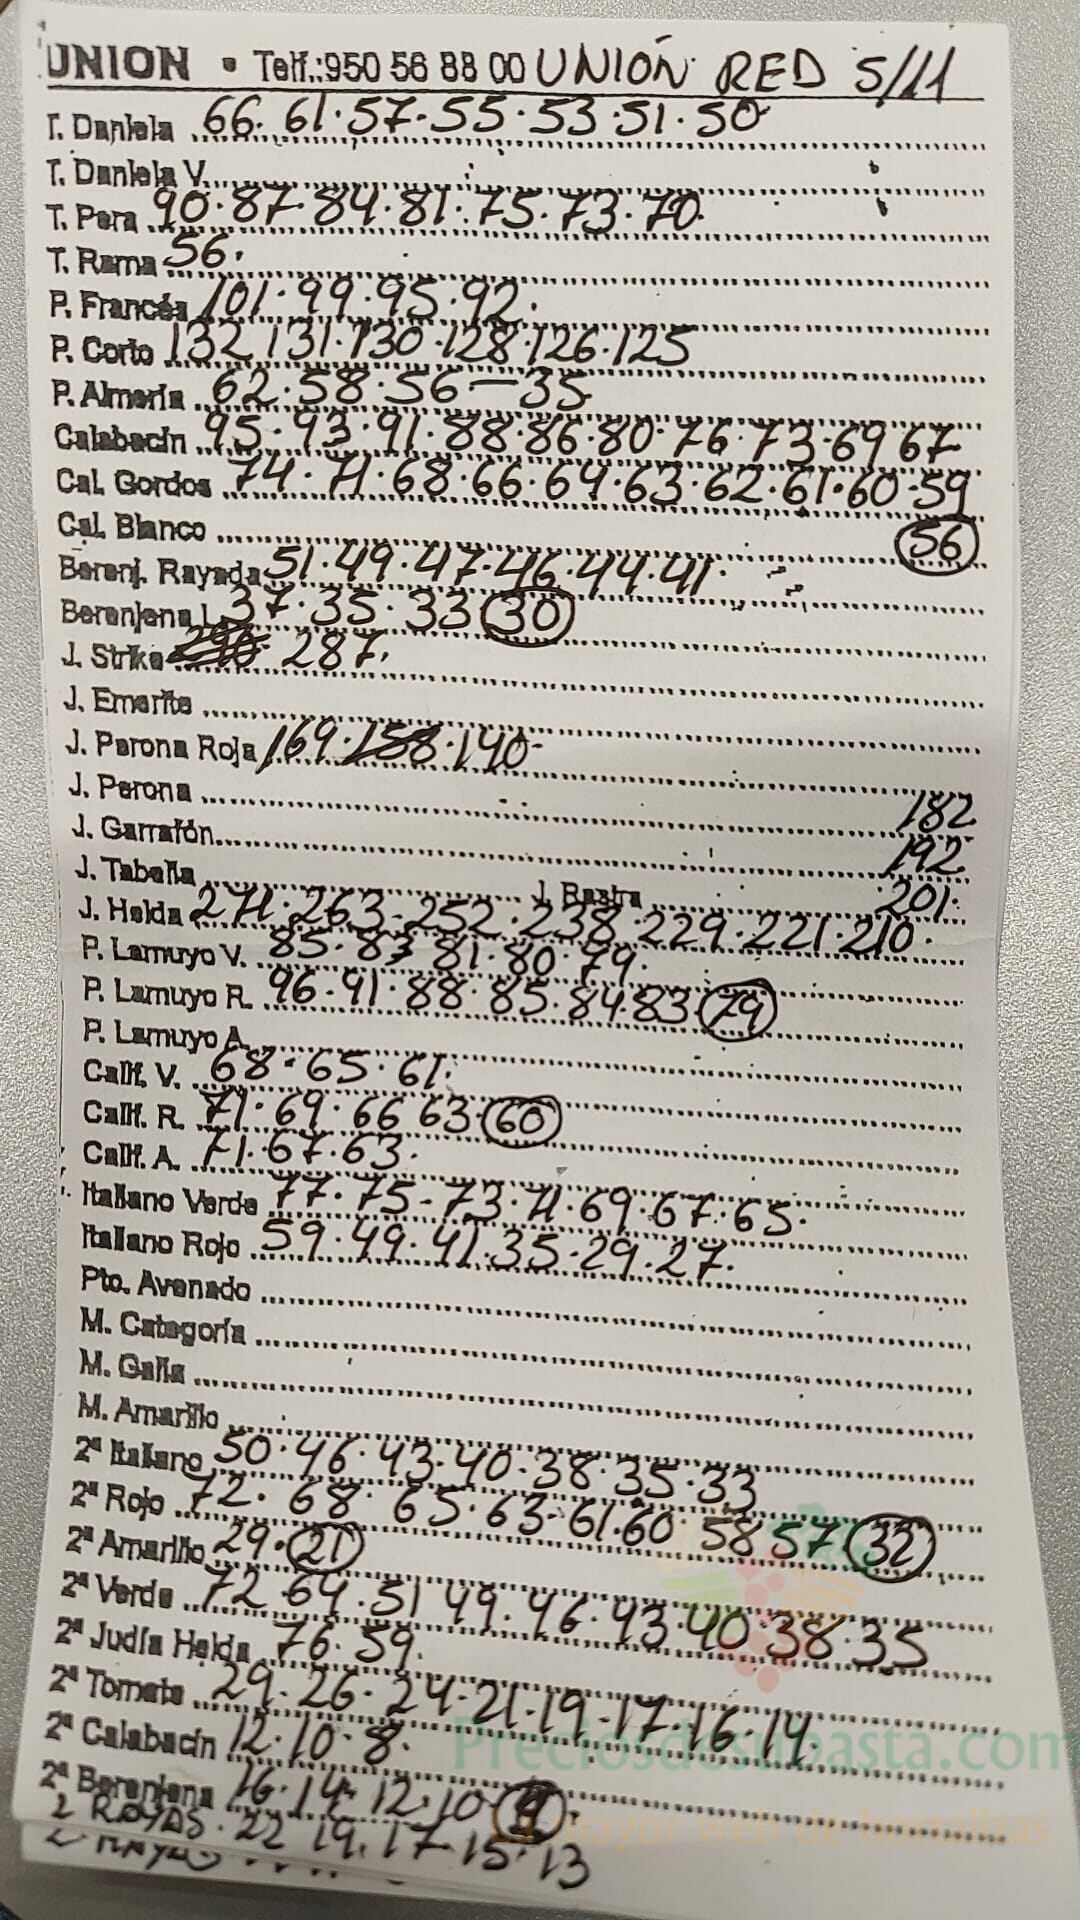 UNION • Telf.:950 56 88 00 UNIÓN RED 5/11
T. Daniela 66. 61. 57. 55. 53. 51. 50
T. Daniela V.
T. Pera 90. 87. 84. 81. 75. 73. 70.
T. Rama 56.
P. Francés 101. 99. 95. 92.
P. Corto 132 131. 130. 128. 126. 125
P. Almería 62. 58. 56 — 35
Calabacín 95. 93. 91. 88. 86. 80. 76. 73. 69 67
Cal. Gordos 74. 71. 68. 66. 64. 63. 62. 61. 60. 59
Cal. Blanco 56
Berenj. Rayada 51. 49. 47. 46. 44. 41.
Berenjena L. 37. 35. 33 30
J. Strike 287.
J. Emerite
J. Perona Roja 169. 158. 140-
J. Perona 182
J. Garrafón 192
J. Tabella J. Rastra 201.
J. Helda 271. 263- 252. 238. 229. 221. 210.
P. Lamuyo V. 85. 83 81. 80. 79.
P. Lamuyo R. 96. 91. 88. 85. 84. 83. 79
P. Lamuyo A.
Calif. V. 68. 65. 61.
Calif. R. 71. 69. 66 63. 60
Calif. A. 71. 67. 63.
Italiano Verde 77. 75- 73. 71. 69. 67. 65.
Italiano Rojo 59. 49. 41. 35. 29. 27.
Pto. Avenado
M. Categoría
M. Galia
M. Amarillo
2ª Italiano 50. 46. 43. 40. 38. 35. 33
2ª Rojo 72. 68. 65. 63- 61. 60. 58 57 32
2ª Amarillo 29. 21
2ª Verde 72 64. 51 49. 46. 43. 40. 38. 35
2ª Judía Helda 76. 59.
2ª Tomate 29. 26. 24. 21. 19. 17. 16. 14.
2ª Calabacín 12. 10. 8.
2ª Berenjena 16. 14. 12. 10. 9.
2 ROYAS. 22 19. 17. 15. 13
Preciosdesubasta.com
La mayor web de hortalizas